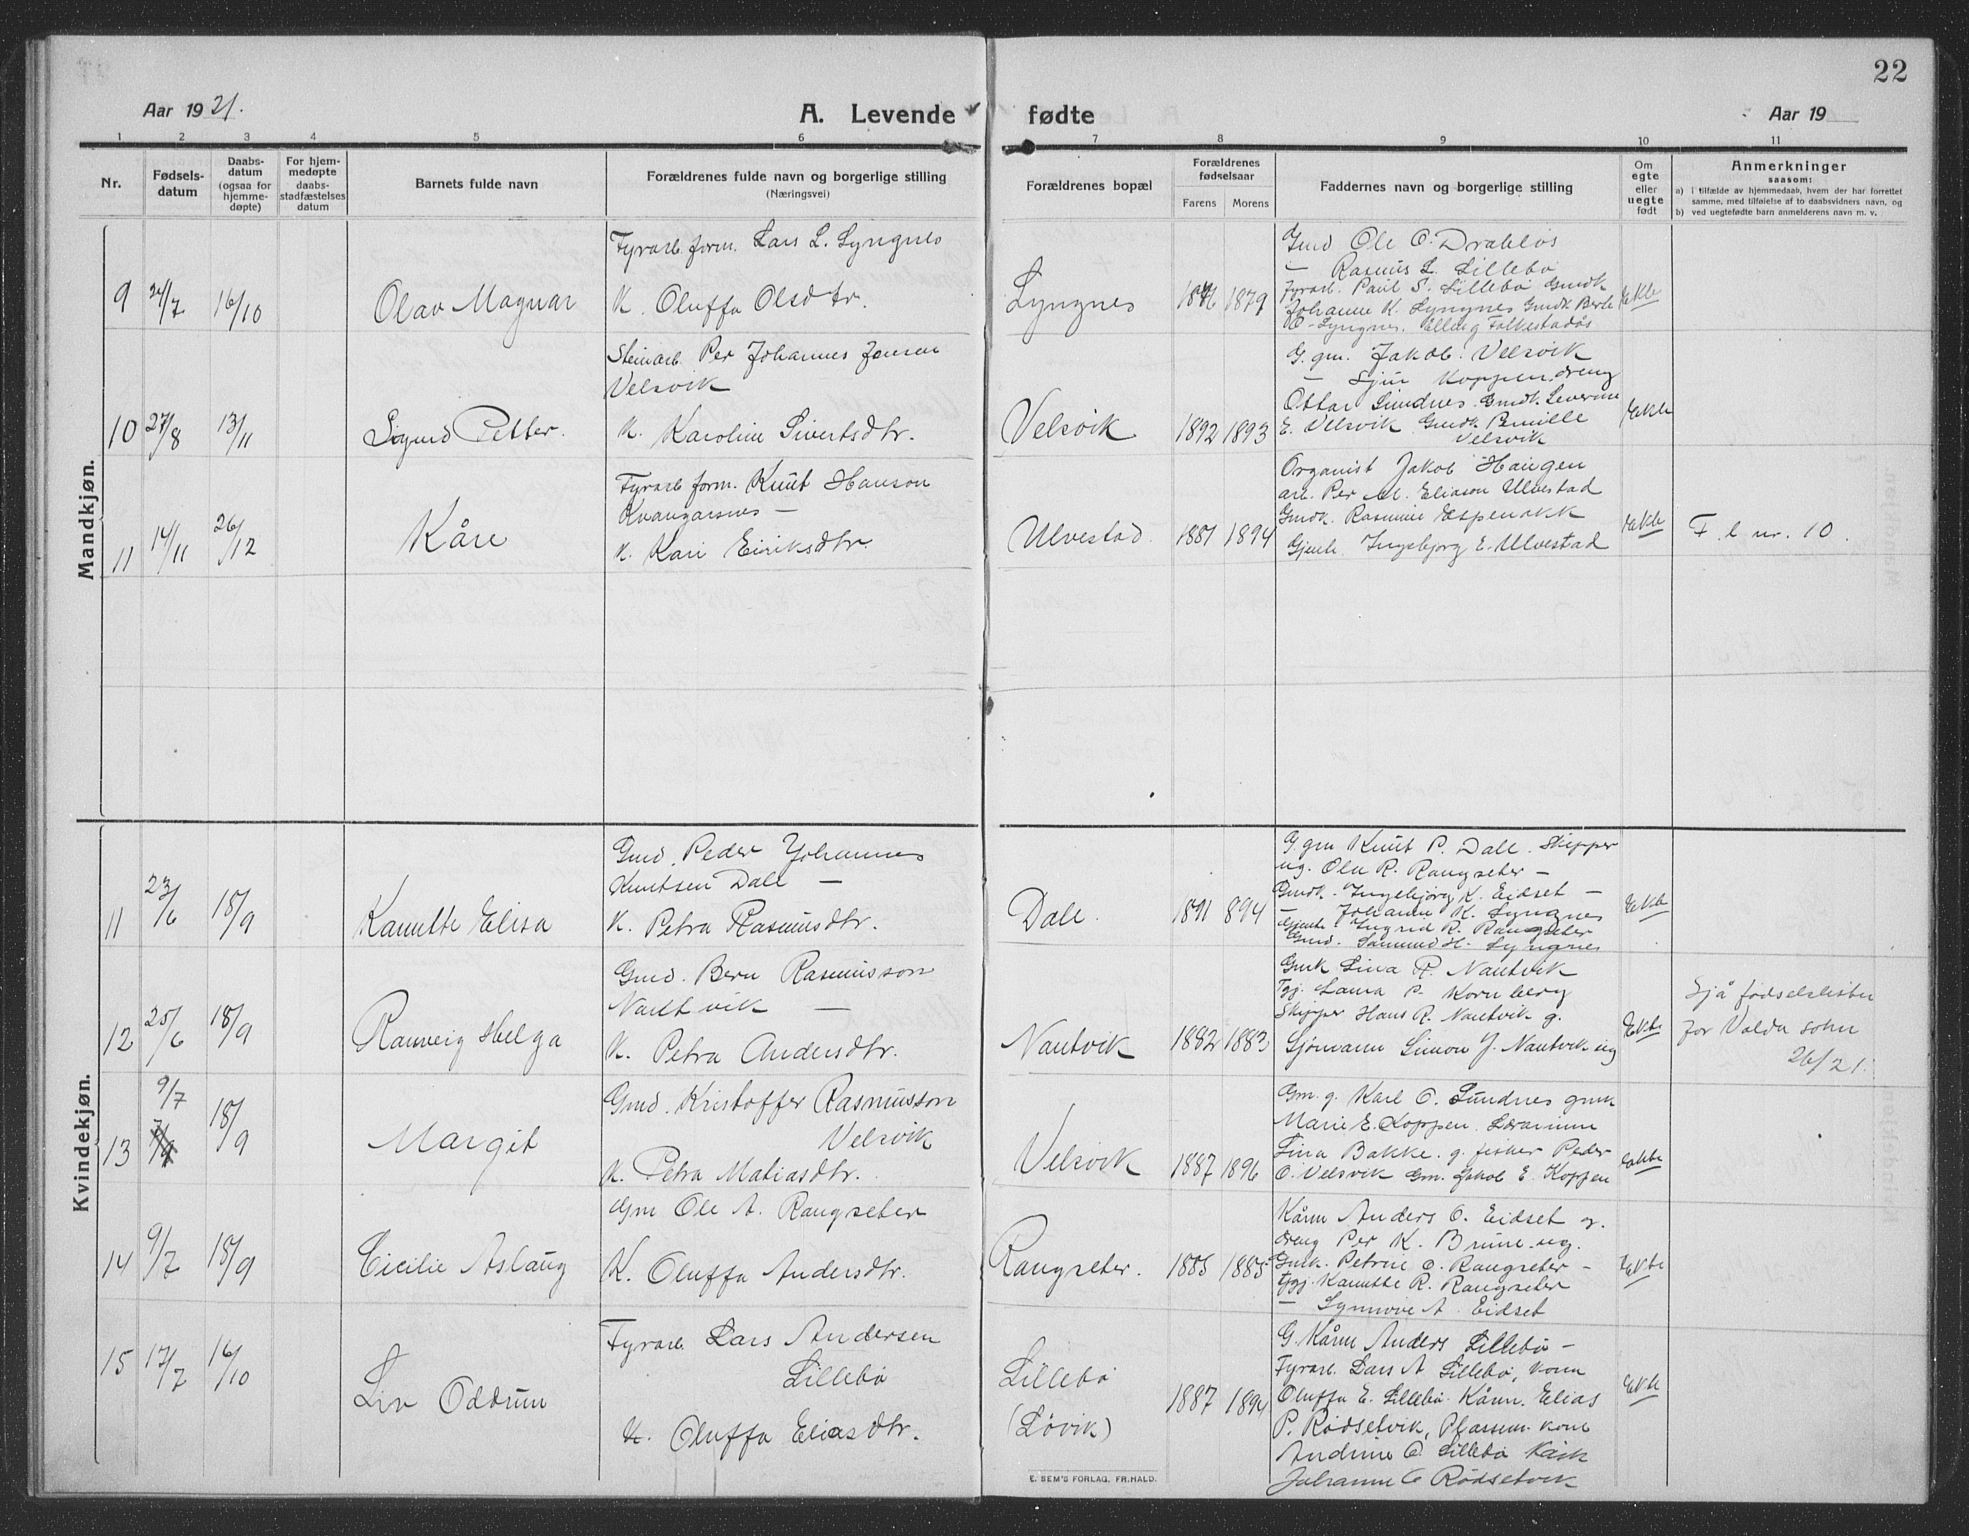 22
Aar 1921.
A. Levende
fødte
Aar 19
1 2 3 4 5 6 7 8 9 10 11
Nr.
Fødsels-
datum
Daabs-
datum
(ogsaa for
hjemme-
døpte)
For hjem-
medøpte
daabs-
stadfæstelses
datum
Barnets fulde navn
Forældrenes fulde navn og borgerlige stilling
(Næringsvei)
Forældrenes bopæl
Forældrenes
fødselsaar
Farens Morens
Faddernes navn og borgerlige stilling
Om
egte
eller
uegte
født
Anmerkninger
saasom:
a) i tilfælde av hjemmedaab, hvem der har forrettet
samme, med tilføielse av to daabsvidners navn, og
b) ved uegtefødte barn anmelderens navn m. v.
Mandkjøn.
9 24/7 16/10 Olav Magnar
Fyrarb. form. Lars L. Lyngnes
K. Oluffa Olsdtr.
Lyngnes 1879
Gmd Ole O. Drabløs
— Rasmus L. Lillebø
Fyrarb. Paul S. Lillebø Gmdk
Johanne K. Lyngnes Gmdk Berte
O. Lyngnes. Folkestadås
Ekte
10 27/8 13/11 Sigurd Petter.
Steinarb. Per Johannes Jonson
Velsvik
K. Karoline Sivertsdtr.
Velsvik 1892 1893
G. gm. Jakob Velsvik
— Sjur Koppen. dreng
Ottar Sundnes. Gmdk. Severine
E. Velsvik Gmdk
Velsvik
Ekte
11 14/11 26/12 Kåre
Fyrarb. form. Knut Hanson
Kvangarsnes —
K. Kari Eiriksdtr.
Ulvestad. 1881 1894
Organist Jakob Haugen
arb. Per M. Eliason Ulvestad
Gmdk. Rasmine Espenakk
Gjente. Ingebjorg E. Ulvestad
Ekte
F. l. nr. 10.
Kvindekjøn.
11 23/6 18/9 Kanutte Elisa
Gmd. Peder Johannes
Knutsen Dale —
K. Petra Rasmusdtr.
Dale. 1891 894
G. gm Knut P. Dale. Skipper
ug. Ola R. Rangseter —
Gmdk. Ingebjørg K. Eidset —
— Johanne K. Lyngnes
Gjente Ingrid R. Rangseter
Gmd. Samund H. Lyngnes
Ekte
12 25/6 18/9 Ranveig Helga
Gmd. Bern Rasmusson
Nautvik —
K. Petra Andersdtr.
Nautvik 1882 1883
Gmk Lina R. Nautvik
Tgj. Laura P. Kornberg
Skipper Hans R. Nautvik g.
Sjømann Simon J. Nautvik ug
Ekte
Sjå fødselslister
for Volda sokn
26/21.
13 9/7 18/9 Margit
Gmd. Kristoffer Rasmusson
Velsvik
K. Petra Matiasdtr.
Velsvik 1887 1896
Gm. g. Karl O. Sundnes gmk
Marie E. Koppen.
Lina Bakke. g. fisker Peder
O. Velsvik Gm. Jakob E. Koppen
Ekte
14 9/7 18/9 Cicilie Aslaug
Gm Ole A. Rangseter
K. Oluffa Andersdtr.
Rangseter. 1885 1885
Kårm Anders O. Eidset g.
dreng Per K. Brune ug.
Gmk. Petrine O. Rangseter —
tgj. Kanutte R. Rangseter
— Synnøve A. Eidset
Ekte
15 17/7 16/10 Liv Oddrun
Fyrarb. Lars Andersen
Lillebø
K. Oluffa Eliasdtr.
Lillebø
(Løvik)
1887 1894
G. Kårm Anders Lillebø —
Fyrarb. Lars A Lillebø, kona
Oluffa E. Lillebø Kårm. Elias
P. Rødsetvik, Plassm. kone
Andrine O. Lillebø
Johanne O Rødsetvik
Ekte
E. SEM'S FORLAG, FR.HALD.